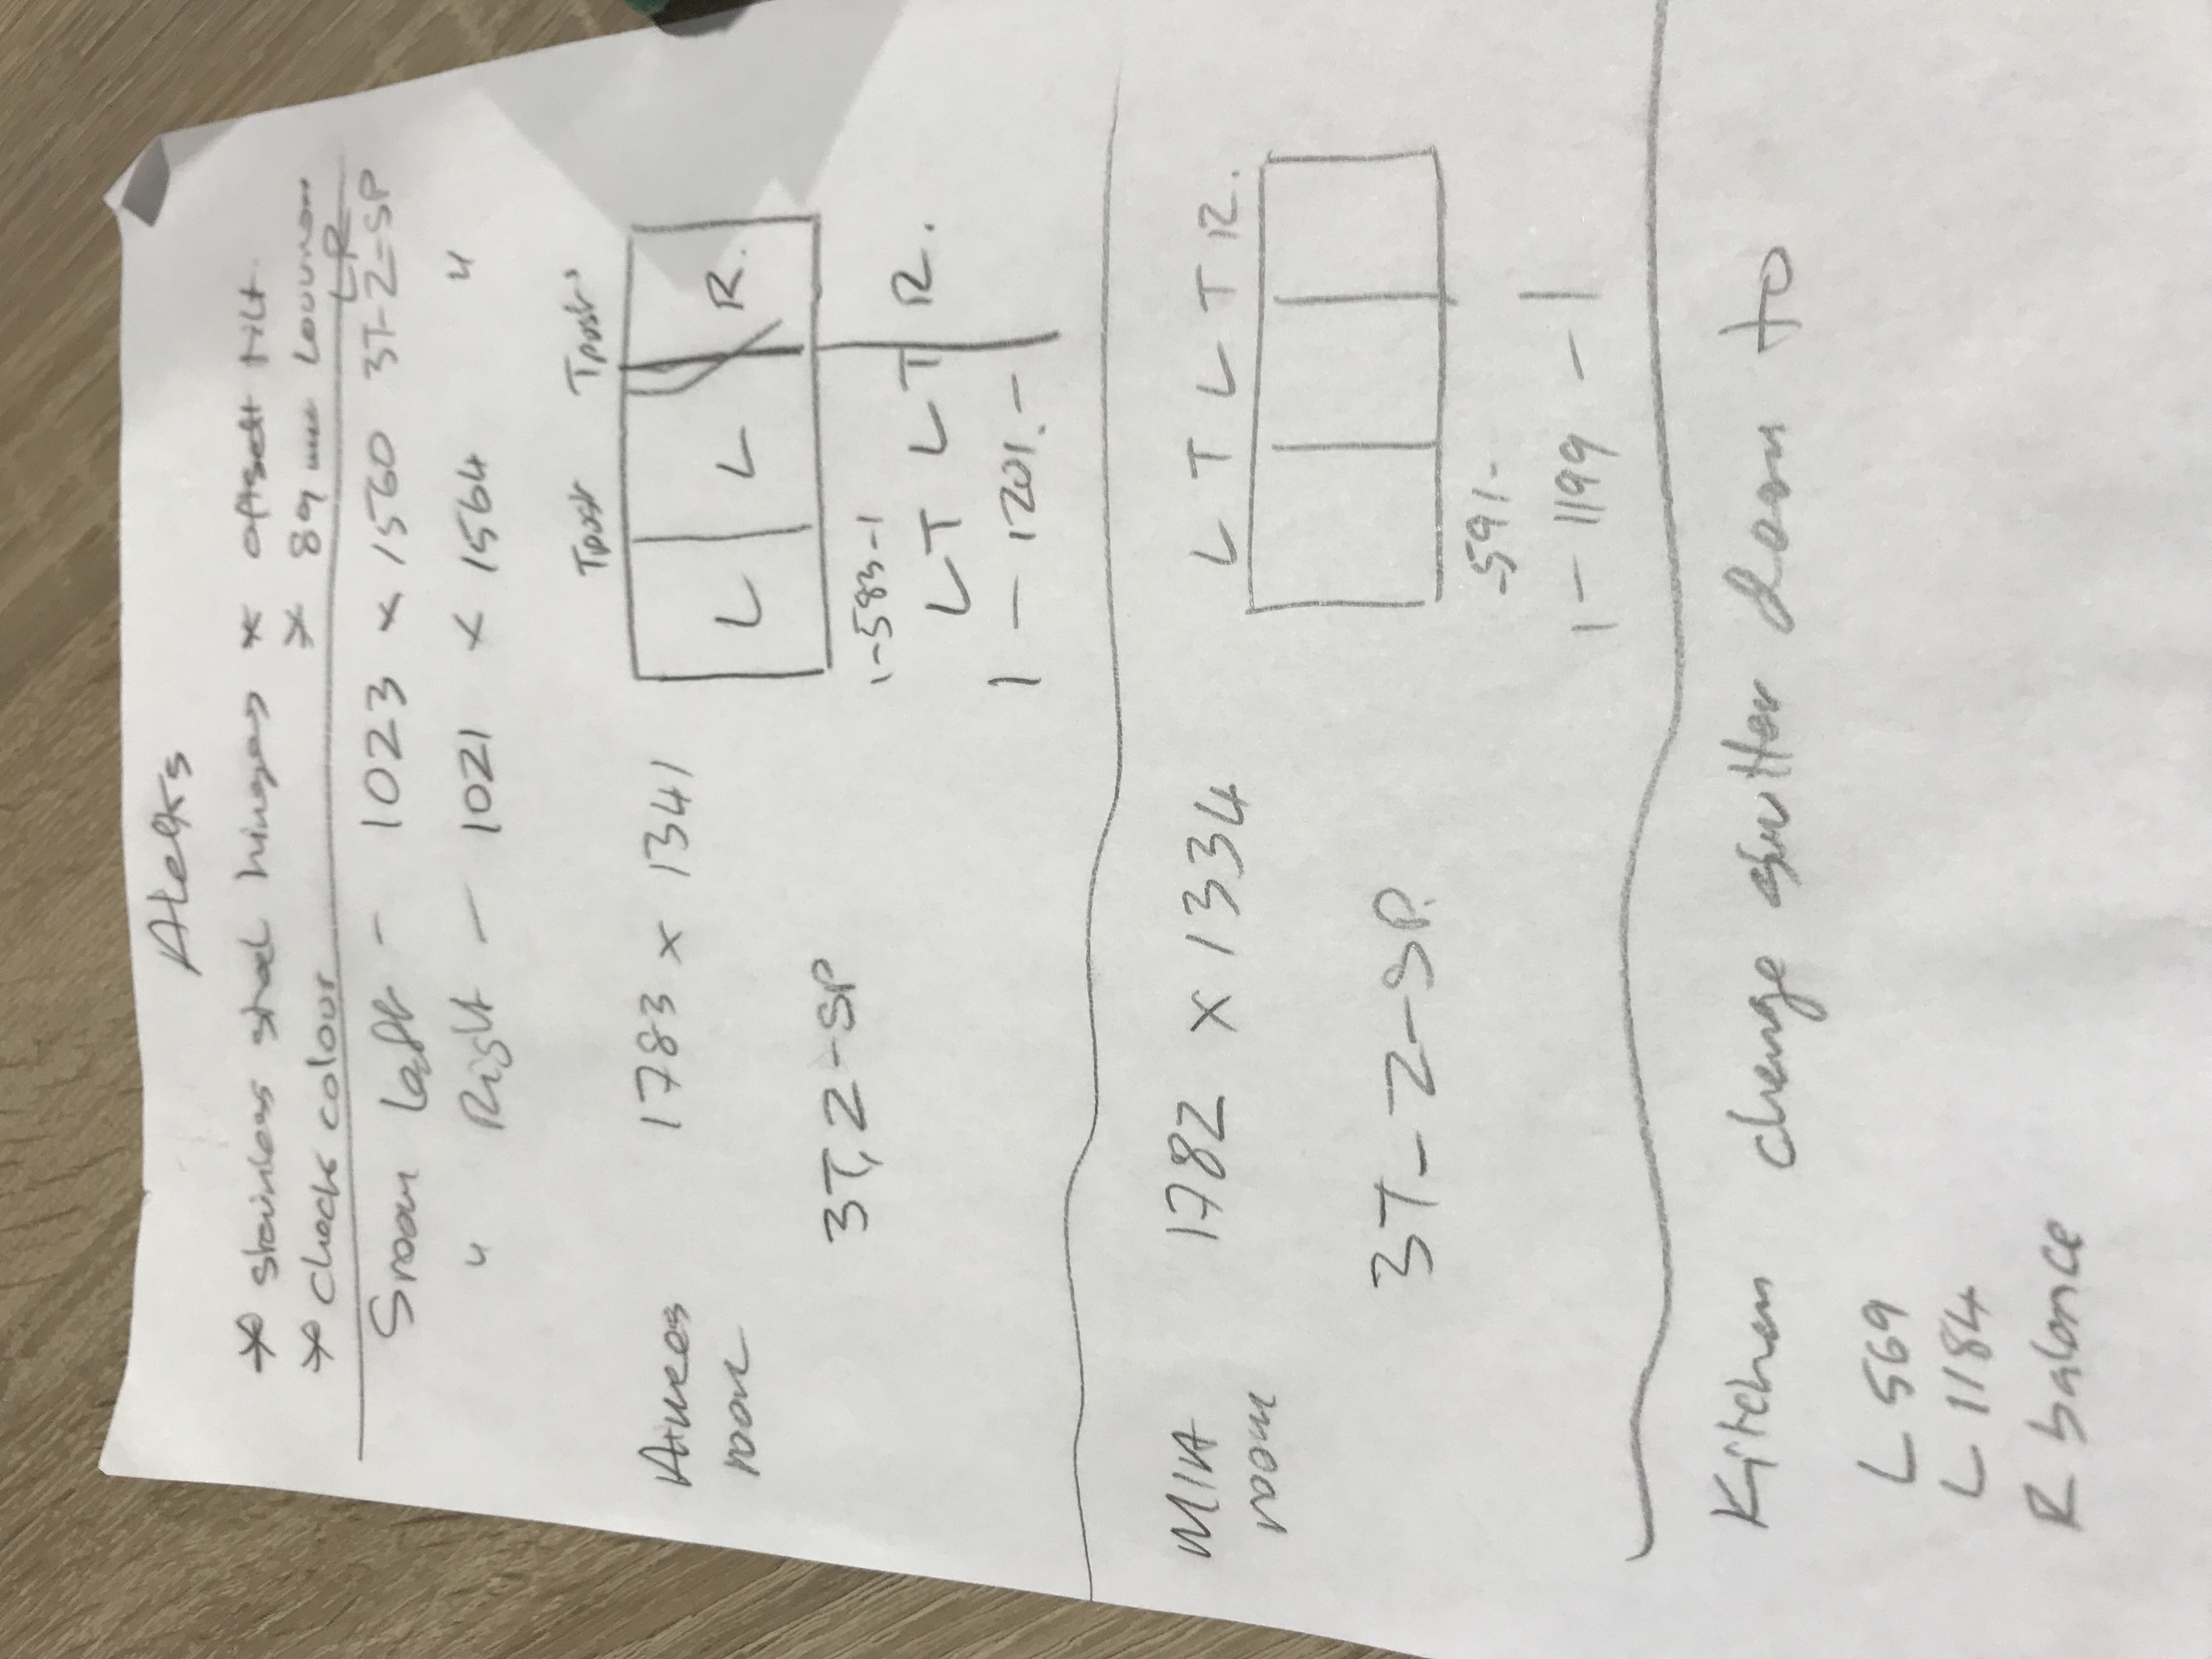 Aleks
* stainless steel hinges * offset tilt
* check colour * 89mm
LR
Sroom left - 1023 x 1560 3T-Z-SP
" Right - 1021 x 1564 "
Tpost Tpost
room 1783 x 1341 L L R.
3T, Z-SP 1-583-1
LT LT R.
1 - 1201. -
MIA 1782 x 1334 L T L T R.
room
3T-Z-SP. -591-
1 - 1199 - 1
Kitchen change to
L 569
L 1184
R balance